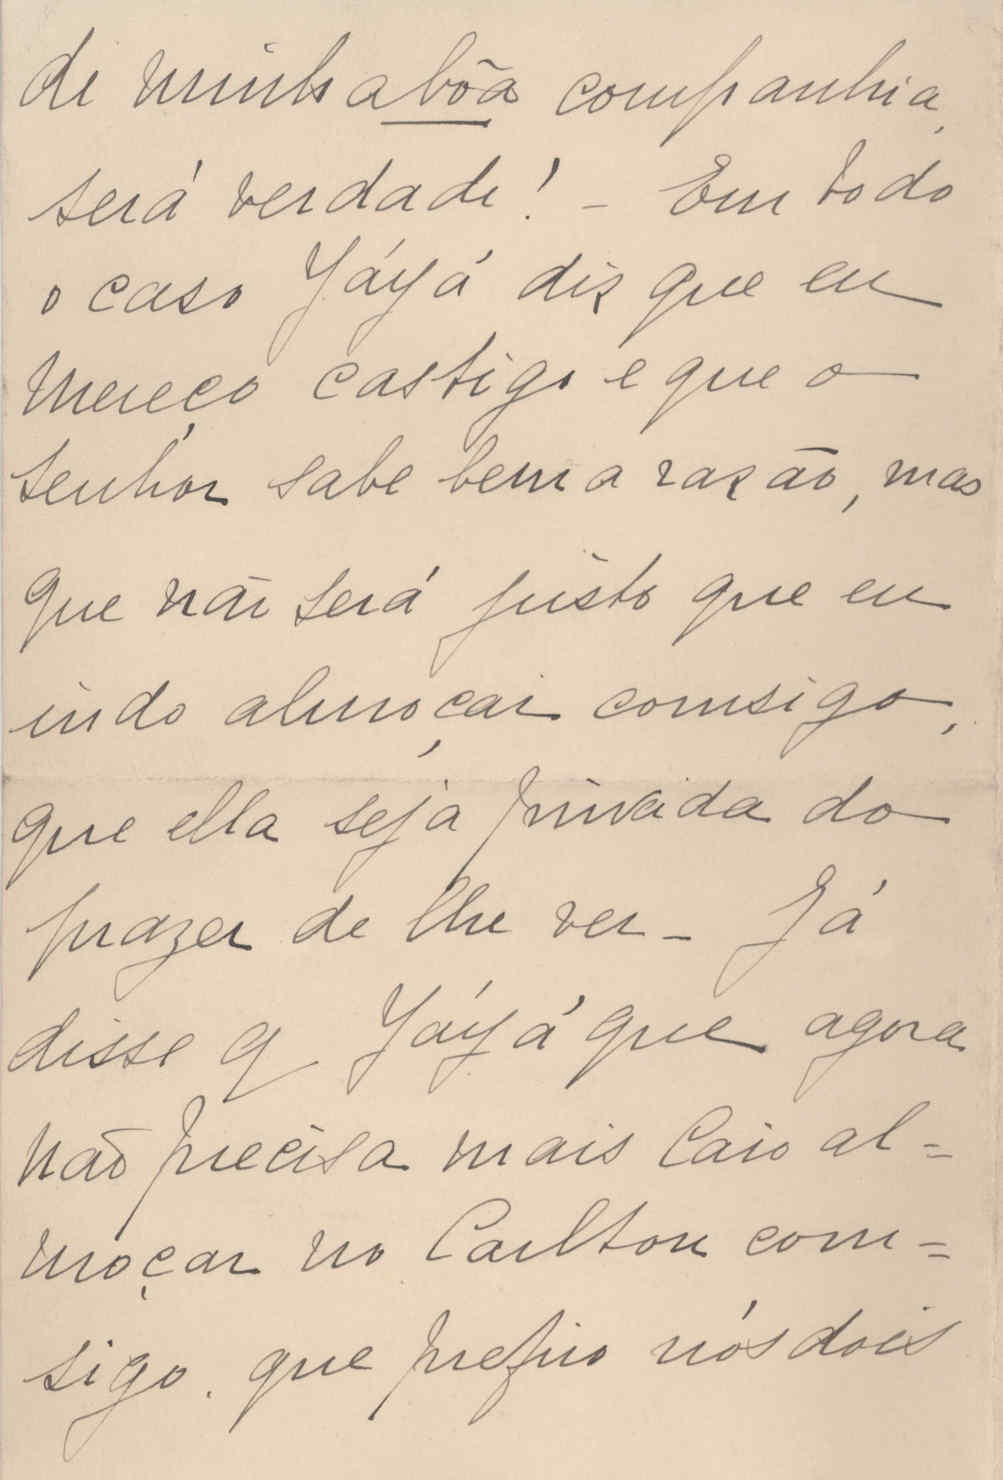 de minha bôa companhia,
será verdade! – Em todo
o caso Yáyá diz que eu
mereço castigo e que o
senhor sabe bem a razão, mas
que não será justo que eu
indo almoçar comsigo,
que ella seja privada do
prazer de lhe ver – Já
disse a Yáyá que agora
não precisa mais Caio al=
moçar no Carlton com=
sigo. que prefiro nós dois